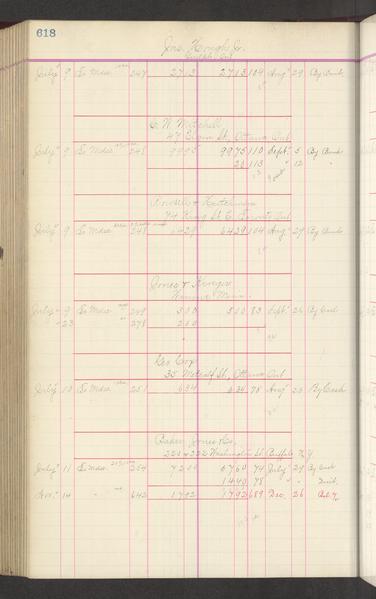 618
Jno. Hough Jr.
Guelph Ont
July 9 To Mdse 247 2713 2713 104 Aug 29 By Cash
C. W. Mitchell
47 Elgin St, Ottawa Ont
July 9 To Mdse 248 9995 9975 110 Sept 5 By Cash
20 113 " 12 "
74 King St E. Toronto Ont
July 9 To Mdse 248 6429 6429 104 Aug 29 By Cash
Jones & Kroeger
Winona Minn.
July 9 To Mdse 249 300 510 83 Sept 26 By Cash
" 23 " 278 210
Geo Cox
35 Metcalf St, Ottawa Ont
July 10 To Mdse 251 634 634 78 Aug By Cash
Baker, Jones & Co,
220 & 222 Washington St Buffalo N.Y.
July 11 To Mdse 254 7200 5760 74 July 29 By Cash
1440 78 " "
Nov. 14 " 642 1792 1792 689 Dec. 26